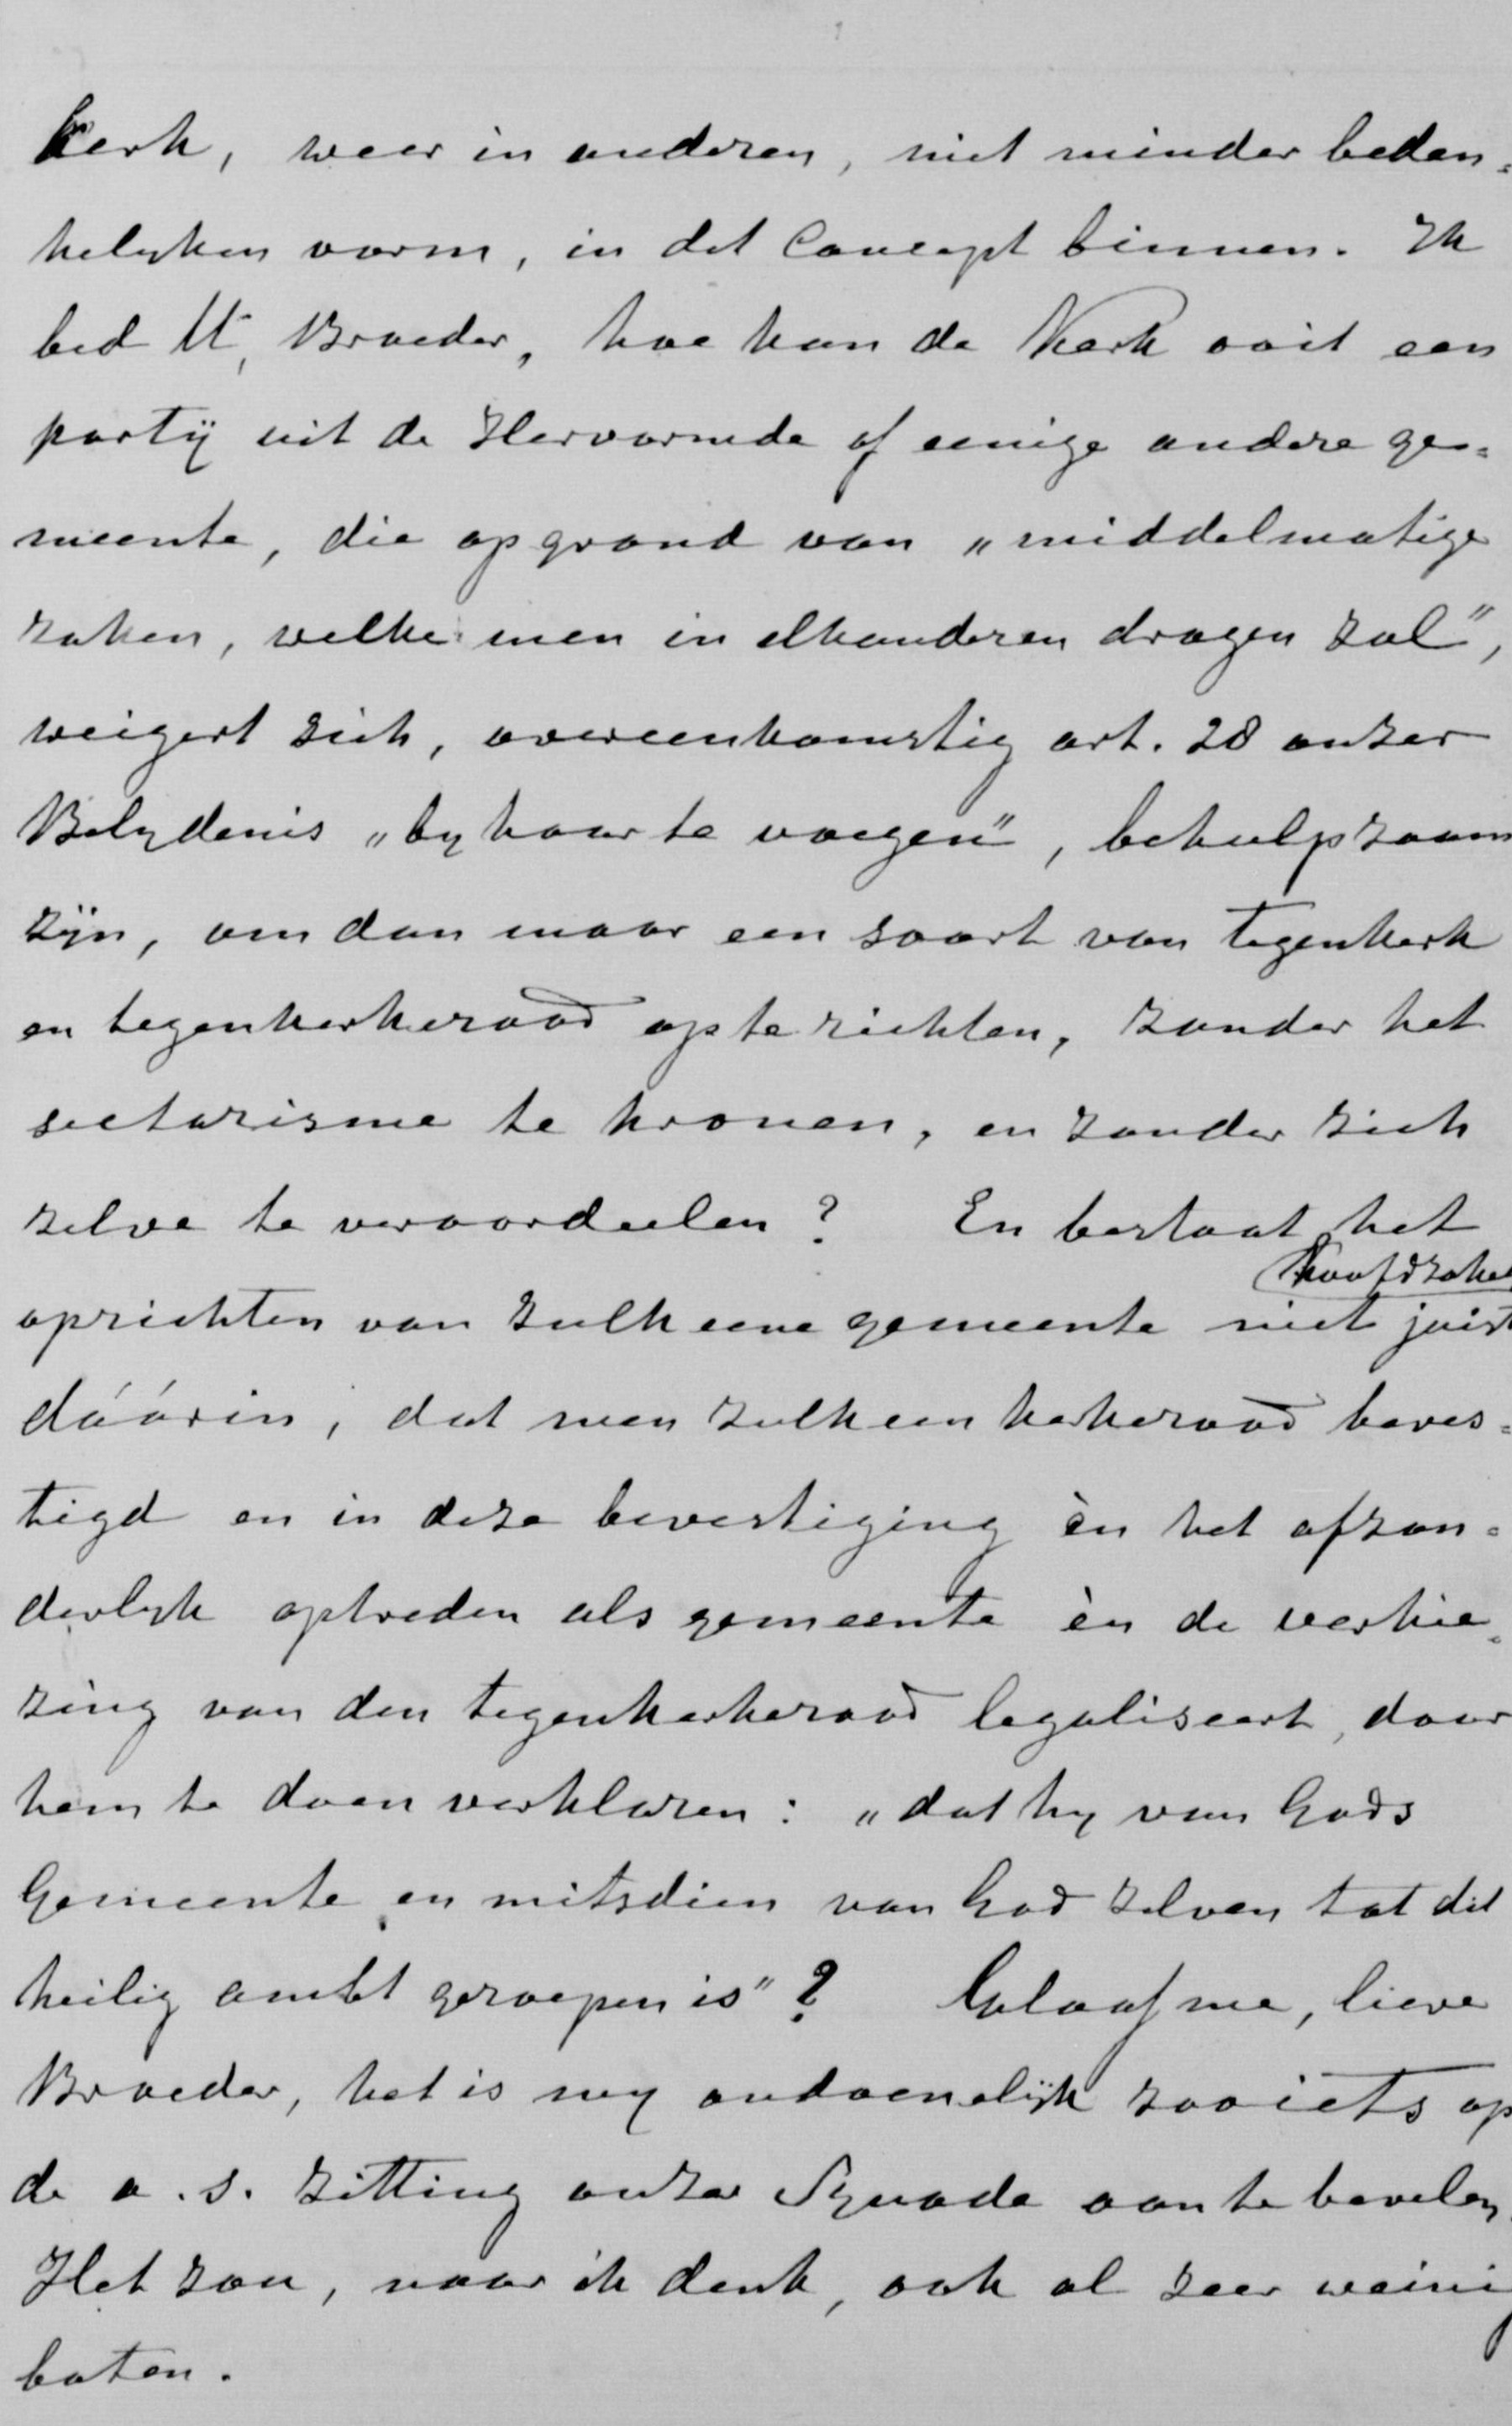 kerk, weer in anderen, niet minder beden=
kelyken vorm, in dit Concept binnen. Ik
bid U, Broeder, hoe kan de Kerk ooit een
partij uit de Hervormde of eenige andere ge=
meente, die op grond van „middelmatige
zaken, welke men in elkanderen dragen zal",
weigert zich, overeenkomstig art. 28 onzer
Belydenis „by haar te voegen", behulpzaam
zijn, om dan maar een soort van tegenkerk
en tegenkerkeraad op te richten, zonder het
sectarisme te kronen, en zonder zich
zelve te veroordeelen? En bestaat het
oprichten van zulk eene gemeente niet juist
hoofdzake
dáárin, dat men zulk een kerkeraad beves=
tigd en in deze bevestiging èn het afzon=
derlyk optreden als gemeente èn de verkie=
zing van den tegenkerkeraad legaliseert, door
hem te doen verklaren: „dat hy van Gods
Gemeente en mitsdien van God zelven tot dit
heilig ambt geroepen is"? Geloof me, lieve
Broeder, het is my ondoenelijk zooiets op
de a.s. zitting onzer Synode aan te bevelen.
Het zou, naar ik denk, ook al zeer weinig
baten.